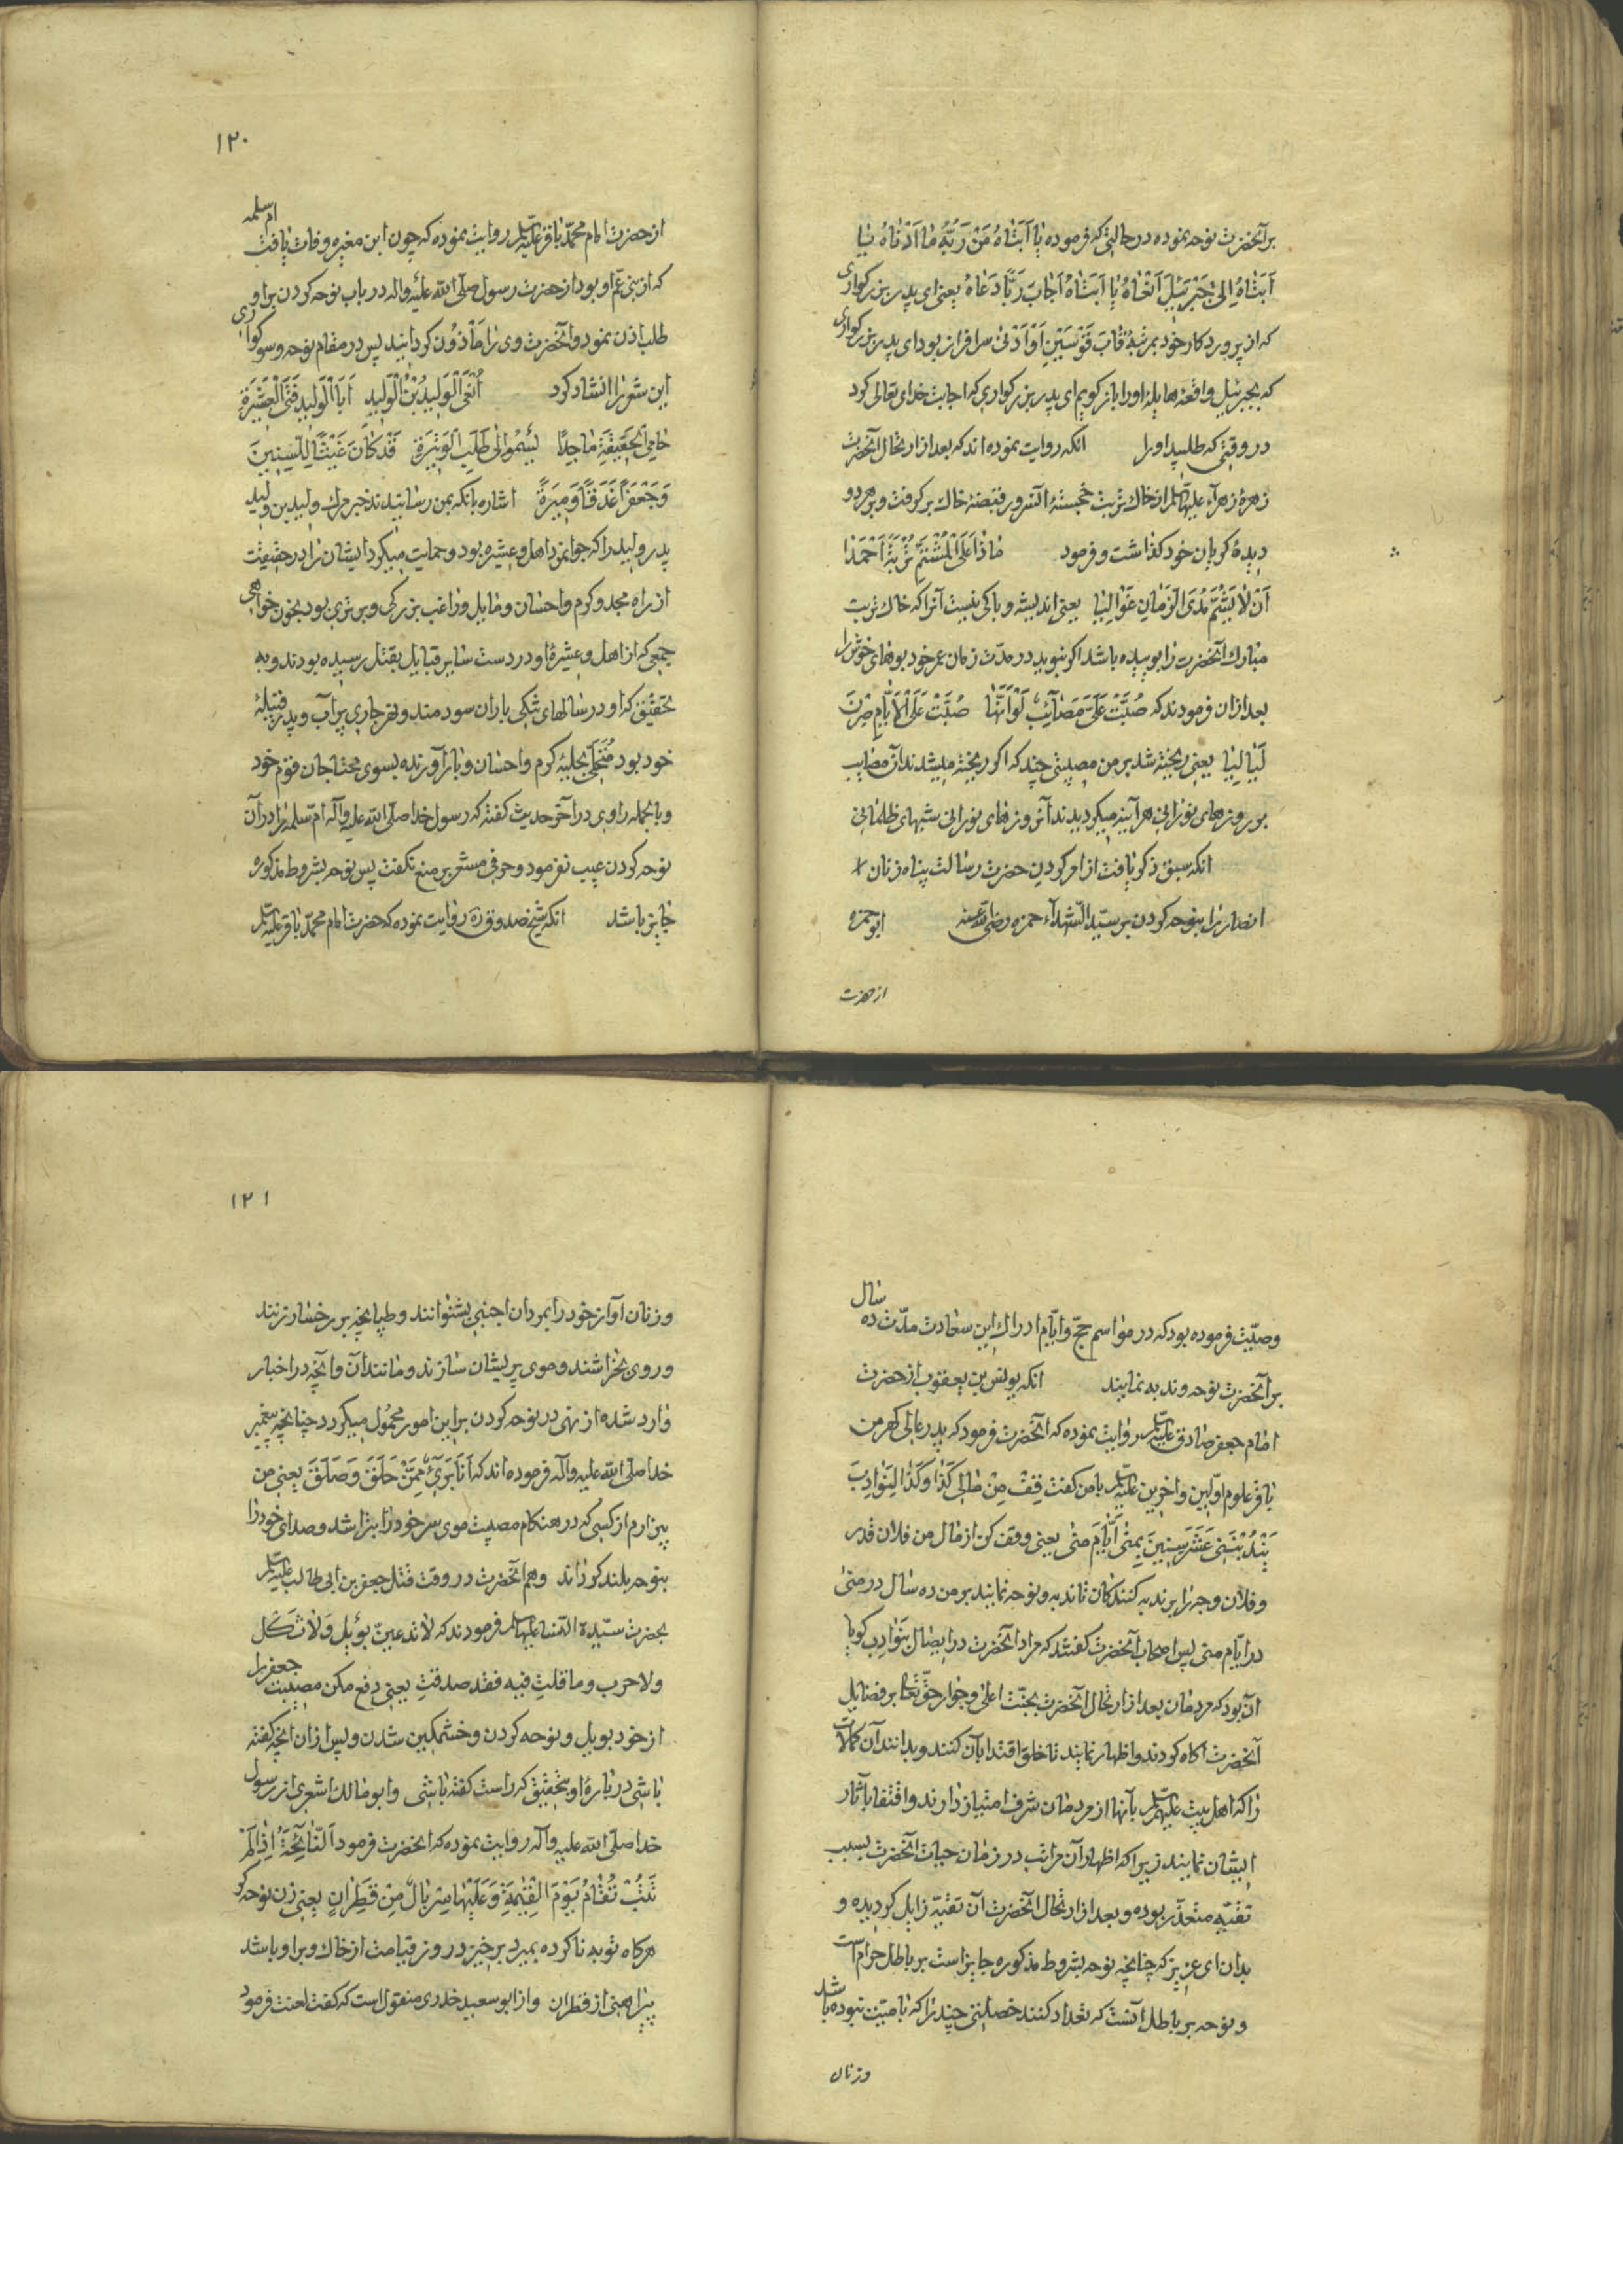 بر آنحضرت نوحه نموده در حالتی که فرموده یا اَبَتاهُ مَنْ رَبُّهُ ما اَدْناهُ یا
اَبَتاهُ اِلیٰ جَبْرَئیلَ اَنْعاهُ یا اَبَتاهُ اَجابَ رَبًّا دَعاهُ یعنی ای پدر بزرکواری
که از پروردکار خود بمرتبهٔ قابَ قَوْسَیْنِ اَوْ اَدْنیٰ سرافراز بود ای پدر بزرکواری
که بجبرئیل واقعهٔ هایلهٔ او را باز کویم ای پدر بزرکواری که اجابت خدای تعالی کرد
در وقتی که طلبید او را انکه روایت نموده اند که بعد از ارتحال آنحضرت
زهرهٔ زهرآء علیهاالسلام از خاك تربت خجستهٔ آنسرور قبضهٔ خاك برکرفت و بر هر دو
دیدهٔ کریان خود کذاشت و فرمود ماذا عَلَی الْمُشْتَمِّ تُرْبَةَ اَحْمَدٰا
اَنْ لٰا یَشُمَّ مُدَی الزَّمانِ غَوالِیا یعنی اندیشه و باکی نیست آنرا که خاك تربت
مبارك آنحضرت را بوییده باشد اکر نبوید در مدّت زمان عمر خود بوهای خوش را
بعد از ان فرمودند که صُبَّتْ عَلَیَّ مَصٰائِبُ لَوْ اَنَّها صُبَّتْ عَلَی الْاَیّامِ صِرْنَ
لَیٰالِیا یعنی ریخته شد بر من مصیبتی چند که اکر ریخته میشدند آن مصایب
بر روزهای نورانی هرآینه میکردیدند آن روزهای نورانی شبهای ظلمانی
انکه سبق ذکر یافت از امر کردن حضرت رسالت پناه زنان
انصار را بنوحه کردن بر سیّد الشهدآء حمزه رضی الله عنه ابو حمزه
از حضرت
۱۲۰
از حضرت امام محمّد باقر علیه السلام روایت نموده که چون ابن مغیره وفات یافت ام سلمه
که از بنی عمّ او بود از حضرت رسول صلّی الله علیه واله در باب نوحه کردن بر او
طلب اذن نمود و آنحضرت وی را مأذون کردانید پس در مقام نوحه و سوکواری
این شعر را انشاد کرد اَنْعَی الْوَلِیدَ بْنَ الْوَلِیدِ اَبَا الْوَلِیدِ فَتَی الْعَشِیرَةِ
حامِی الْحَقِیقَةِ ماجِدًا یَسْمُو اِلیٰ طَلَبِ الْوَتِیرَةِ قَدْ کانَ غَیْثًا لِلسِّنِینَ
وَجَعْفَرًا غَدَقًا وَمِیرَةً اشاره بانکه بمن رسانیدند خبر مرك ولید بن ولید
پدر ولید را که جوانمرد اهل و عشیره بود و حمایت میکرد ایشان را در حقیقت
از راه مجد و کرم و احسان و مایل و راغب بزرکی و برتری بود بخون خواهی
جمعی که از اهل و عشیرهٔ او در دست سایر قبایل بقتل رسیده بودند و به
تحقیق که او در سالهای تنکی باران سودمند و نهر جاری پر آب و پدر قبیلهٔ
خود بود مُتَحَلّی بحلیهٔ کرم و احسان و بار آورنده بسوی محتاجان قوم خود
و بالجمله راوی در آخر حدیث کفته که رسول خدا صلّی الله علیه وآله امّ سلمه را در آن
نوحه کردن عیب نفرمود و حرفی مشعر بر منع نکفت پس نوحه بشروط مذکوره
جایز باشد انکه شیخ صدوق ره روایت نموده که حضرت امام محمّد باقر علیه السلام
وصیّت فرموده بود که در مواسم حجّ و ایّام ادراك این سعادت مدّت ده سال
بر آنحضرت نوحه و ندبه نمایند انکه یونس بن یعقوب از حضرت
امام جعفر صادق علیه السلام روایت نموده که آنحضرت فرمود که پدر عالی کهر من
باقر علوم اوّلین و اخرین علیه السلام با من کفت قِفْ مِنْ مٰالِی کَذٰا وَکَذٰا لِنَوادِبَ
یَنْدُبْنَنِی عَشَرَ سِنِینَ بِمِنیٰ اَیّامَ مِنیٰ یعنی وقف کن از مال من فلان قدر
و فلان وجه را بر ندبه کنندکان تا ندبه و نوحه نمایند بر من ده سال در منی
در ایّام منی پس اصحاب آنحضرت کفتند که مراد آنحضرت در ایصال بنوادب کویا
ان بود که مردمان بعد از ارتحال آنحضرت بجنّت اعلی و جوار حق تعالی بر فضایل
آنحضرت اکاه کردند و اظهار نمایند تا خلق اقتدا بآن کنند و بدانند آن کمالات
را که اهل بیت علیهم السلام بآنها از مردمان شرف امتیاز دارند و اقتفا بآثار
ایشان نمایند زیرا که اظهار آن مراتب در زمان حیات آنحضرت بسبب
تقیّه متعذّر بوده و بعد از ارتحال آنحضرت آن تقیّه زایل کردیده و
بدان ای عزیز که چنانچه نوحه بشروط مذکوره جایز است بر باطل حرام است
و نوحه بر باطل آنست که تعداد کنند خصلتی چند را که با میّت نبوده باشد
و زنان
۱۲۱
و زنان آواز خود را بمردان اجنبی بشنوانند و طپانچه بر رخسار زنند
و روی بخراشند و موی پریشان سازند و مانند آن و آنچه در اخبار
وارد شده از نهی در نوحه کردن بر این امور محمول میکردد چنانچه پیغمبر
خدا صلّی الله علیه وآله فرموده اند که اَنَا بَرِیٌٔ مِمَّنْ حَلَقَ وَصَلَقَ یعنی من
بیزارم از کسی که در هنکام مصیبت موی سر خود را بتراشد و صدای خود را
بنوحه بلند کرداند و هم آنحضرت در وقت قتل جعفر بن ابی طالب علیه السلام
بحضرت سیّدة النسا علیهاالسلام فرمودند که لاتدعین بویل ولاثکل
ولا حرب وما قلتِ فیه فقد صدقتِ یعنی دفع مکن مصیبت جعفر را
از خود بویل و نوحه کردن و خشمکین شدن و پس ازان انچه کفته
باشی در بارهٔ او بتحقیق که راست کفته باشی و ابو مالك اشعری از رسول
خدا صلّی الله علیه وآله روایت نموده که آنحضرت فرمود اَلنّایِحَةُ اِذا لَمْ
تَتُبْ تُقٰامُ یَوْمَ الْقِیٰمَةِ وَعَلَیْها سِرْبالٌ مِنْ قَطِرانٍ یعنی زن نوحه کر
هرکاه توبه ناکرده بمیرد برخیزد روز قیامت از خاك و بر او باشد
پیراهنی از قطران و از ابو سعید خدری منقول است که کفت لعنت فرمود